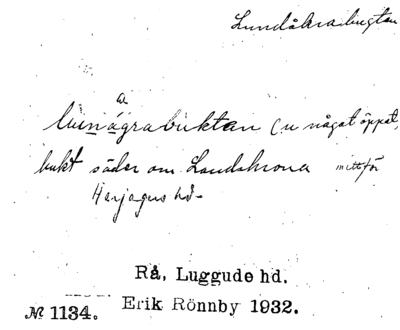 Lundåkrabugten
a
lu̇nágrabuktan (u något öppet,
bukt söder om Landskrona mittför
Harjagers hd.
Rå, Luggude hd.
Erik Rönnby 1932.
№ 1134.